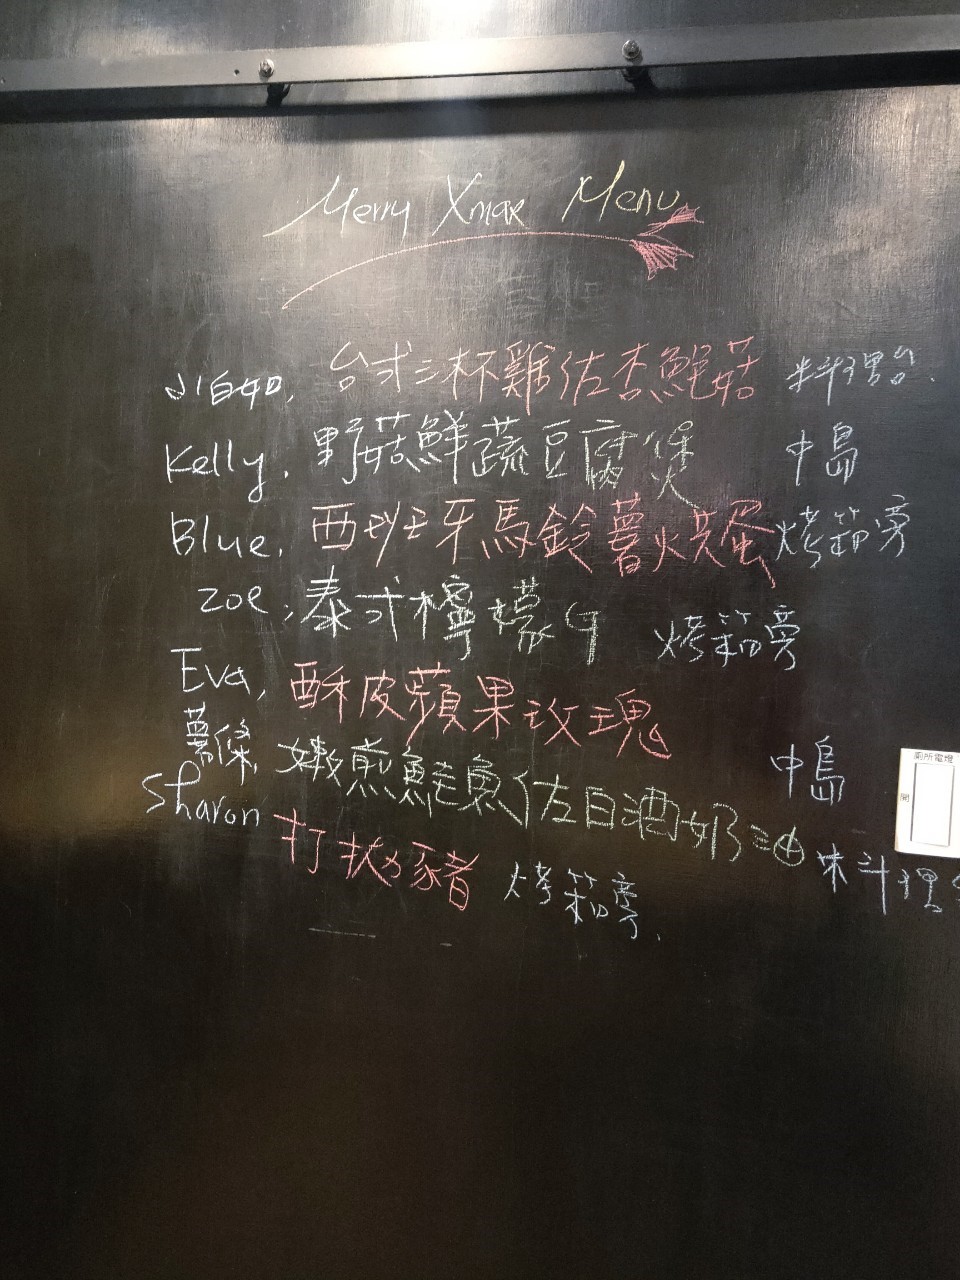 Merry Xmax Menu
小白如, 台式三杯雞佐杏鮑菇 料理台.
Kelly, 野菇鮮蔬豆腐煲 中島
Blue, 西班牙馬鈴薯烘蛋 烤箱旁
zoe, 泰式檸檬 烤箱旁
Eva, 酥皮蘋果玫瑰 中島
薯條, 嫩煎鮭魚佐白酒奶油 料理
Sharon 打拋豬 烤箱旁.
廁所電燈
開